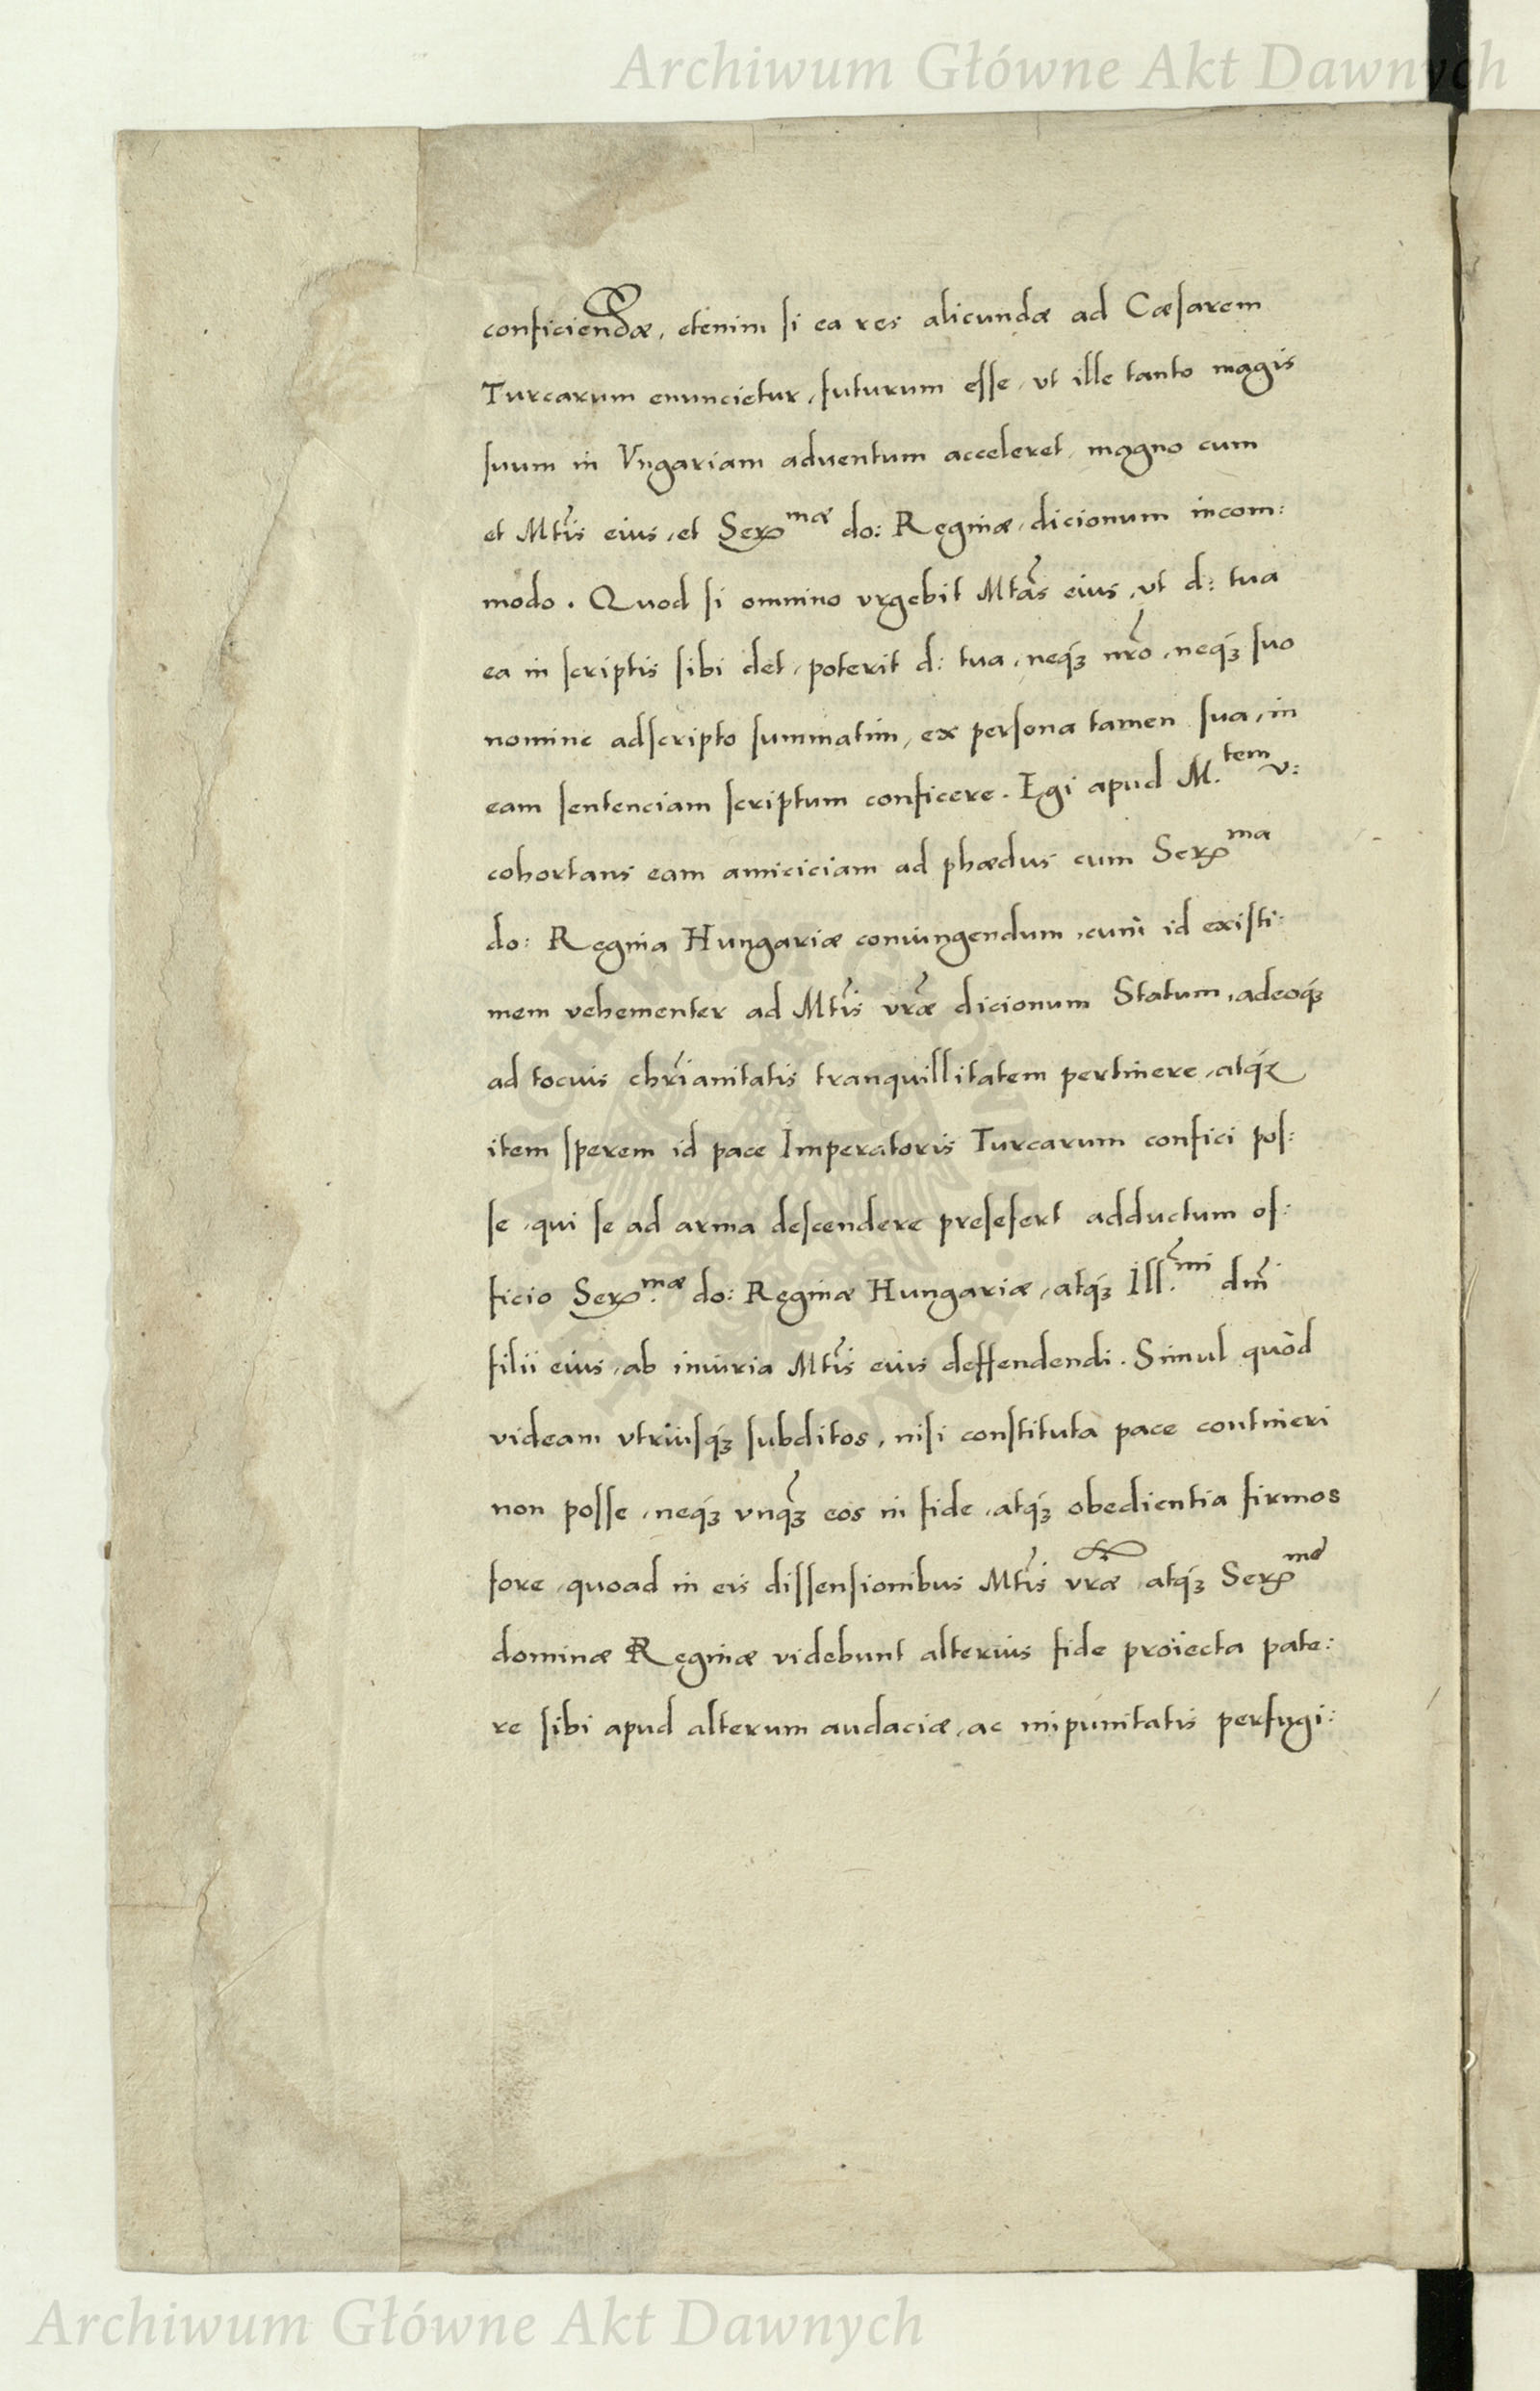 Archiwum Główne Akt Dawnych
conficiendæ, etenim si ea res alicundæ ad Cæsarem
Turcarum enuncietur, futurum esse, vt ille tanto magis
suum in Vngariam aduentum acceleret, magno cum
et Mtis eius, et Ser^mæ do: Reginæ, dicionum incom:
modo. Quod si omnino vrgebit Mtas eius, vt d: tua
ea in scriptis sibi det, poterit d: tua, neqʒ nro, neqʒ suo
nomine adscripto summatim, ex persona tamen sua, in
eam sentenciam scriptum conficere. Egi apud M.^tem v:
cohortans eam amiciciam ad phædus cum Ser^ma
do: Regina Hungariæ coniungendum, cum id existi:
mem vehementer ad Mtis vræ dicionum Statum, adeoqʒ
ad tocius chrianitatis tranquillitatem pertinere, atqʒ
item sperem id pace Imperatoris Turcarum confici pos:
se, qui se ad arma descendere presefert adductum of:
ficio Ser.^mæ do: Reginæ Hungariæ, atqʒ Ill.^mi dni
filii eius, ab iniuria Mtis eius deffendendi. Simul quòd
videam vtriusqʒ subditos, nisi constituta pace contineri
non posse, neqʒ vnqʒ eos in fide, atqʒ obedientia firmos
fore, quoad in eis dissensionibus Mtis vræ atqʒ Ser^me
dominæ Reginæ videbunt alterius fide proiecta pate:
re sibi apud alterum audaciæ, ac impunitatis perfugi:
Archiwum Główne Akt Dawnych